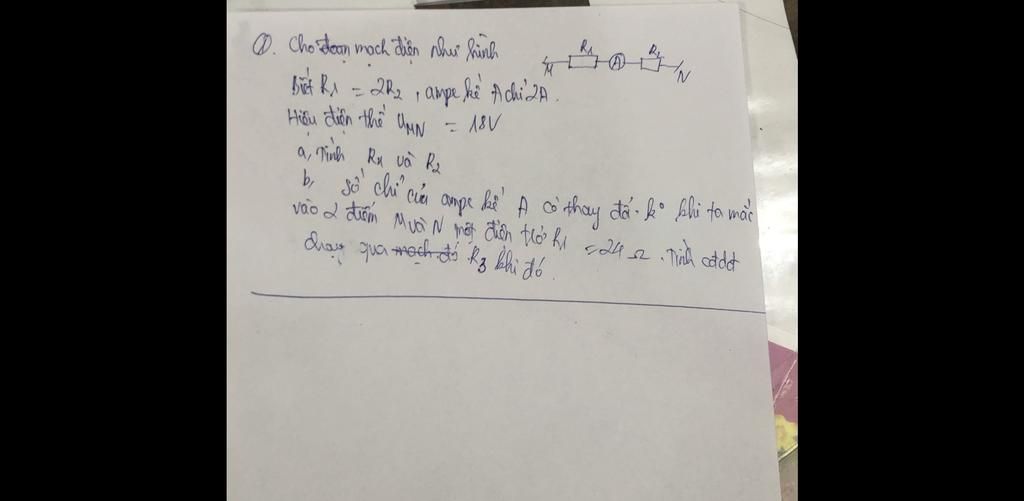 ①. Cho đoạn mạch điện như hình
R1
A
R2
M
N
biết R1 = 2R2, ampe kế A chỉ 2A.
Hiệu điện thế UMN = 18V
a, Tính R1 và R2
b, số chỉ của ampe kế A có thay đổi k° khi ta mắc
vào 2 điểm M và N một điện trở R1 = 24 Ω. Tính cđdđ
chạy qua mạch đó R3 khi đó.